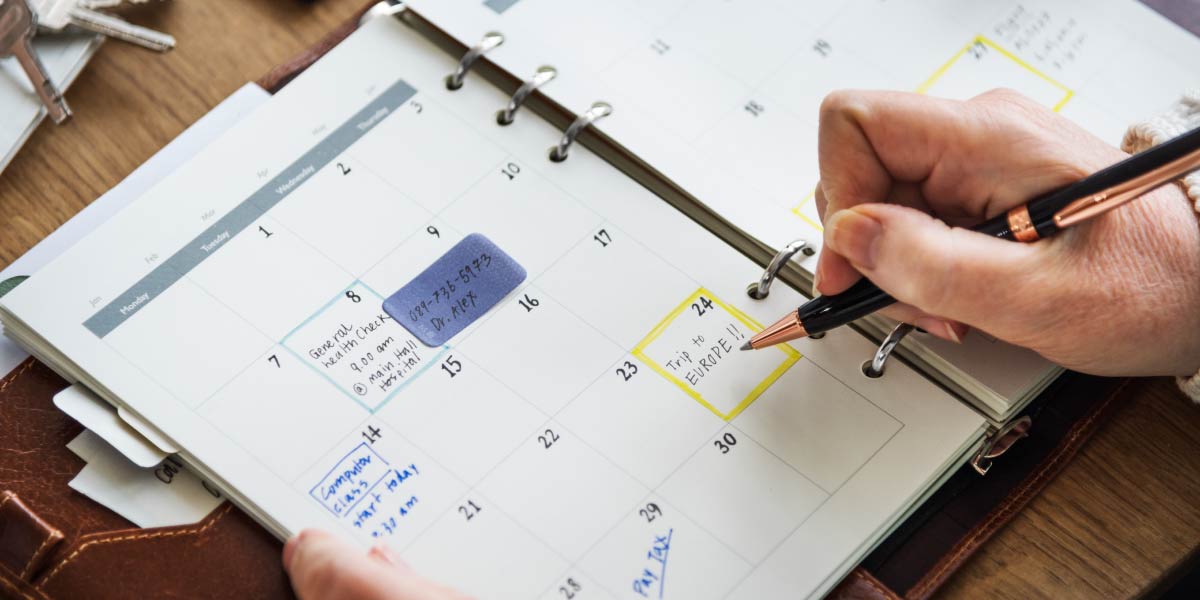 Jan
Feb
Mar
Apr
May
Monday
Tuesday
Wednesday
Thursday
1
2
3
7
8
General
health Check
9.00 am
@ main Hall
Hospital
9
089-736-5973
Dr. Alex
10
14
Computer
class
start today
15
16
17
21
22
23
24
Trip to
EUROPE !!,
28
29
Pay Tax
30
11
18
19
27
Flight